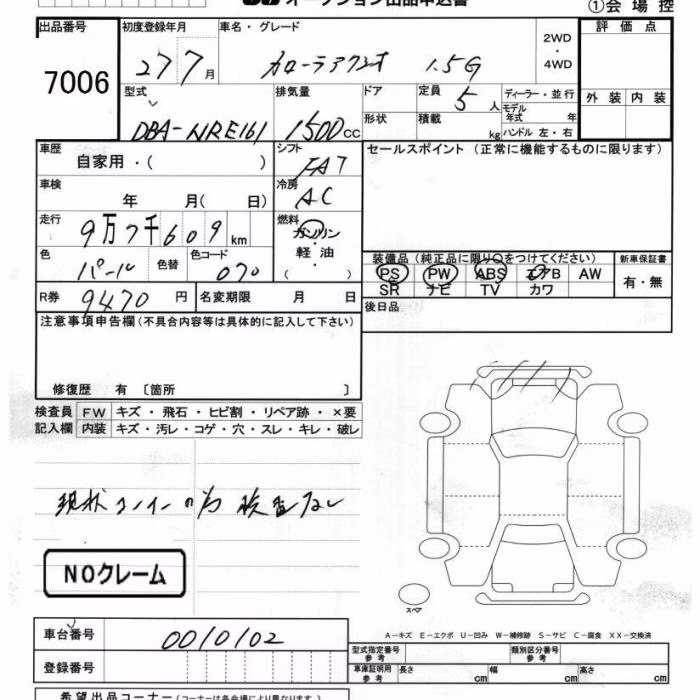 オークション出品申込書
①会場控
出品番号
7006
初度登録年月
27 7月
車名・グレード
カローラアクシオ 1.5G
2WD
・
4WD
評価点
外装 内装
型式
DBA-NRE161
排気量
1500cc
ドア
定員
5人
ディーラー・並行
形状
積載
kg
モデル年式 年
ハンドル 左・右
車歴
自家用・( )
シフト
FAT
セールスポイント(正常に機能するものに限ります)
車検
年 月( 日)
冷房
AC
走行
9万7千609km
燃料
ガソリン
軽油
( ・ )
色
パール
色替
色コード
070
装備品(純正品に限り○をつけてください)
PS PW ABS エアB AW
SR ナビ TV カワ
新車保証書
有・無
R券
9470円
名変期限 月 日
後日品
注意事項申告欄(不具合内容等は具体的に記入して下さい)
修復歴 有 〔箇所 〕
検査員
記入欄
FW キズ・飛石・ヒビ割・リペア跡・×要
内装 キズ・汚レ・コゲ・穴・スレ・キレ・破レ
現状コーナーの為 検査なし
NOクレーム
スペア
車台番号
0010102
登録番号
A-キズ E-エクボ U-凹み W-補修跡 S-サビ C-腐食 XX-交換済
型式指定番号
参考
類別区分番号
参考
車庫証明用
参考
長さ cm 幅 cm 高さ cm
希望出品コーナー(コーナーは各会場により異なります。)